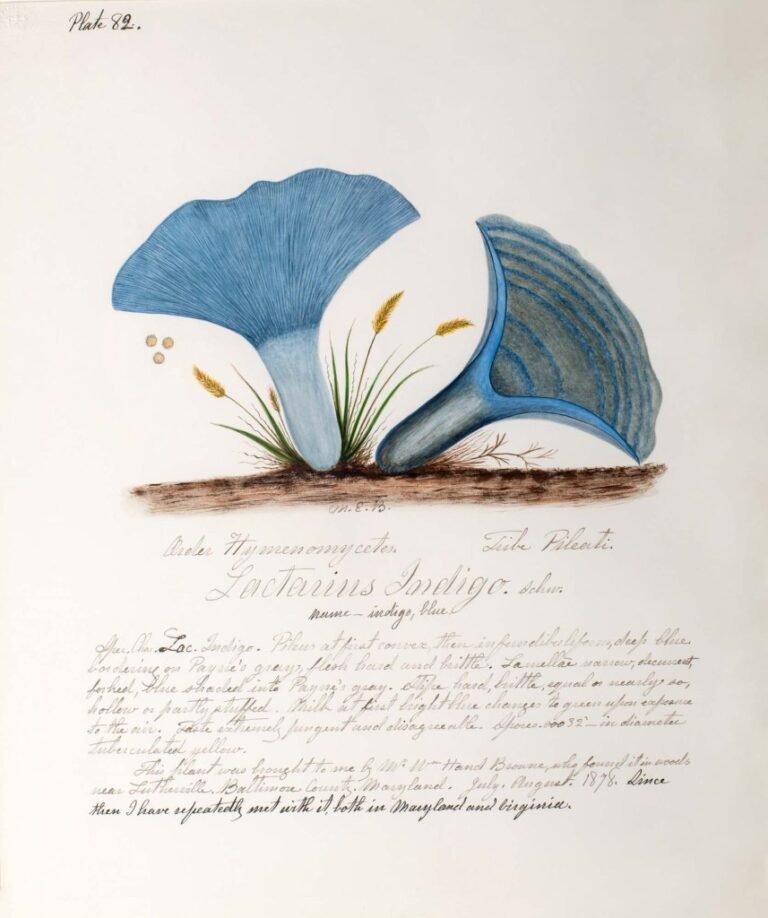 Plate 82.
M.E.B.
Order Hymenomycetes. Tribe Pileati.
Lactarius Indigo. Schw.
name – indigo, blue.
Spec. Char. Lac. Indigo. Pileus at first convex, then infundibuliform, deep blue
bordering on Payne's gray, flesh hard and brittle. Lamellae narrow, decurrent,
forked, blue shaded into Payne's gray. Stipe hard, brittle, equal or nearly so,
hollow or partly stuffed. Milk at first bright blue changes to green upon exposure
to the air. Taste extremely pungent and disagreeable. Spores .00032 – in diameter
tuberculated yellow.
This plant was brought to me by Mr Wm Hand Browne, who found it in woods
near Lutherville, Baltimore County, Maryland. July, August. 1878. Since
then I have repeatedly met with it, both in Maryland and Virginia.